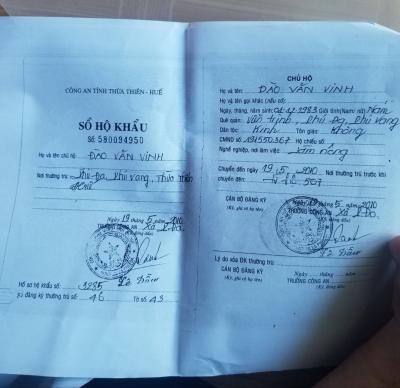 CÔNG AN TỈNH THỪA THIÊN - HUẾ
SỔ HỘ KHẨU
Số: 580094950
Họ và tên chủ hộ: ĐÀO VĂN VINH
Nơi thường trú: Phú Đa, Phú Vang, Thừa Thiên
Huế
Ngày 19 tháng 5 năm 2010
TRƯỞNG CÔNG AN Xã P. Đa
(Ký, đóng dấu)
Hồ sơ hộ khẩu số: 3285
Sổ đăng ký thường trú số: 46 Tờ số: 43
CHỦ HỘ
Họ và tên: ĐÀO VĂN VINH
Họ và tên gọi khác (nếu có):
Ngày, tháng, năm sinh: 02-12-1983 Giới tính (Nam/ nữ) Nam
Quê quán: Phú Đa, Phú Vang
Dân tộc: Kinh Tôn giáo: Không
CMND số: 191550367 Hộ chiếu số:
Nghề nghiệp, nơi làm việc: Làm nông
Chuyển đến ngày 19.5.2010 Nơi thường trú trước khi
chuyển đến: 507
Ngày 19 tháng 5 năm 2010
CÁN BỘ ĐĂNG KÝ TRƯỞNG CÔNG AN Xã P. Đa
(Ký, ghi rõ họ tên) (Ký, đóng dấu)
Lý do xóa ĐK thường trú:
Ngày tháng năm
CÁN BỘ ĐĂNG KÝ TRƯỞNG CÔNG AN
(Ký, ghi rõ họ tên) (Ký, đóng dấu)